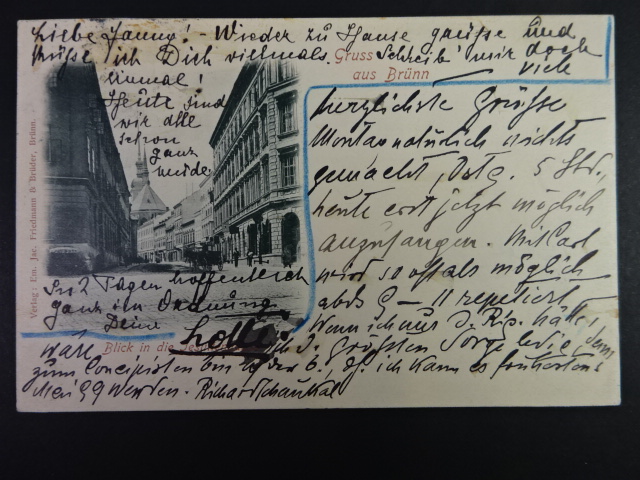 Liebe Fanny! - Wieder zu Hause grüsse und
küsse ich Dich vielmals. Schreib' mir doch
einmal! viele
Heute sind
wir alle
schon
ganz
müde.
In 2 Tagen hoffentlich
ganz in Ordnung.
Deine
Lolli.
Gruss
aus Brünn
Verlag: Em. Jac. Friedmann & Brüder, Brünn.
Blick in die
herzlichste Grüsse
Montag natürlich nichts
gemacht, 5 Std.,
heute erst jetzt möglich
anzufangen. Mit Carl
wird so oft als möglich
abds 9 - 11 repetiert.
Wenn ich nur d. hätte,
wäre ich d. Grössten Sorge ledig, denn
zum Concipisten bin ich der 6., ich kann es frühestens
Mai 99 werden. Richard Schaukal